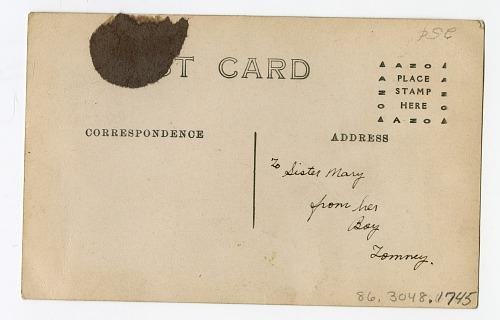 PSC
ST CARD
AZO
PLACE
STAMP
HERE
AZO
CORRESPONDENCE
ADDRESS
To Sister Mary
from her
Boy
Tommey.
86.3048.1745